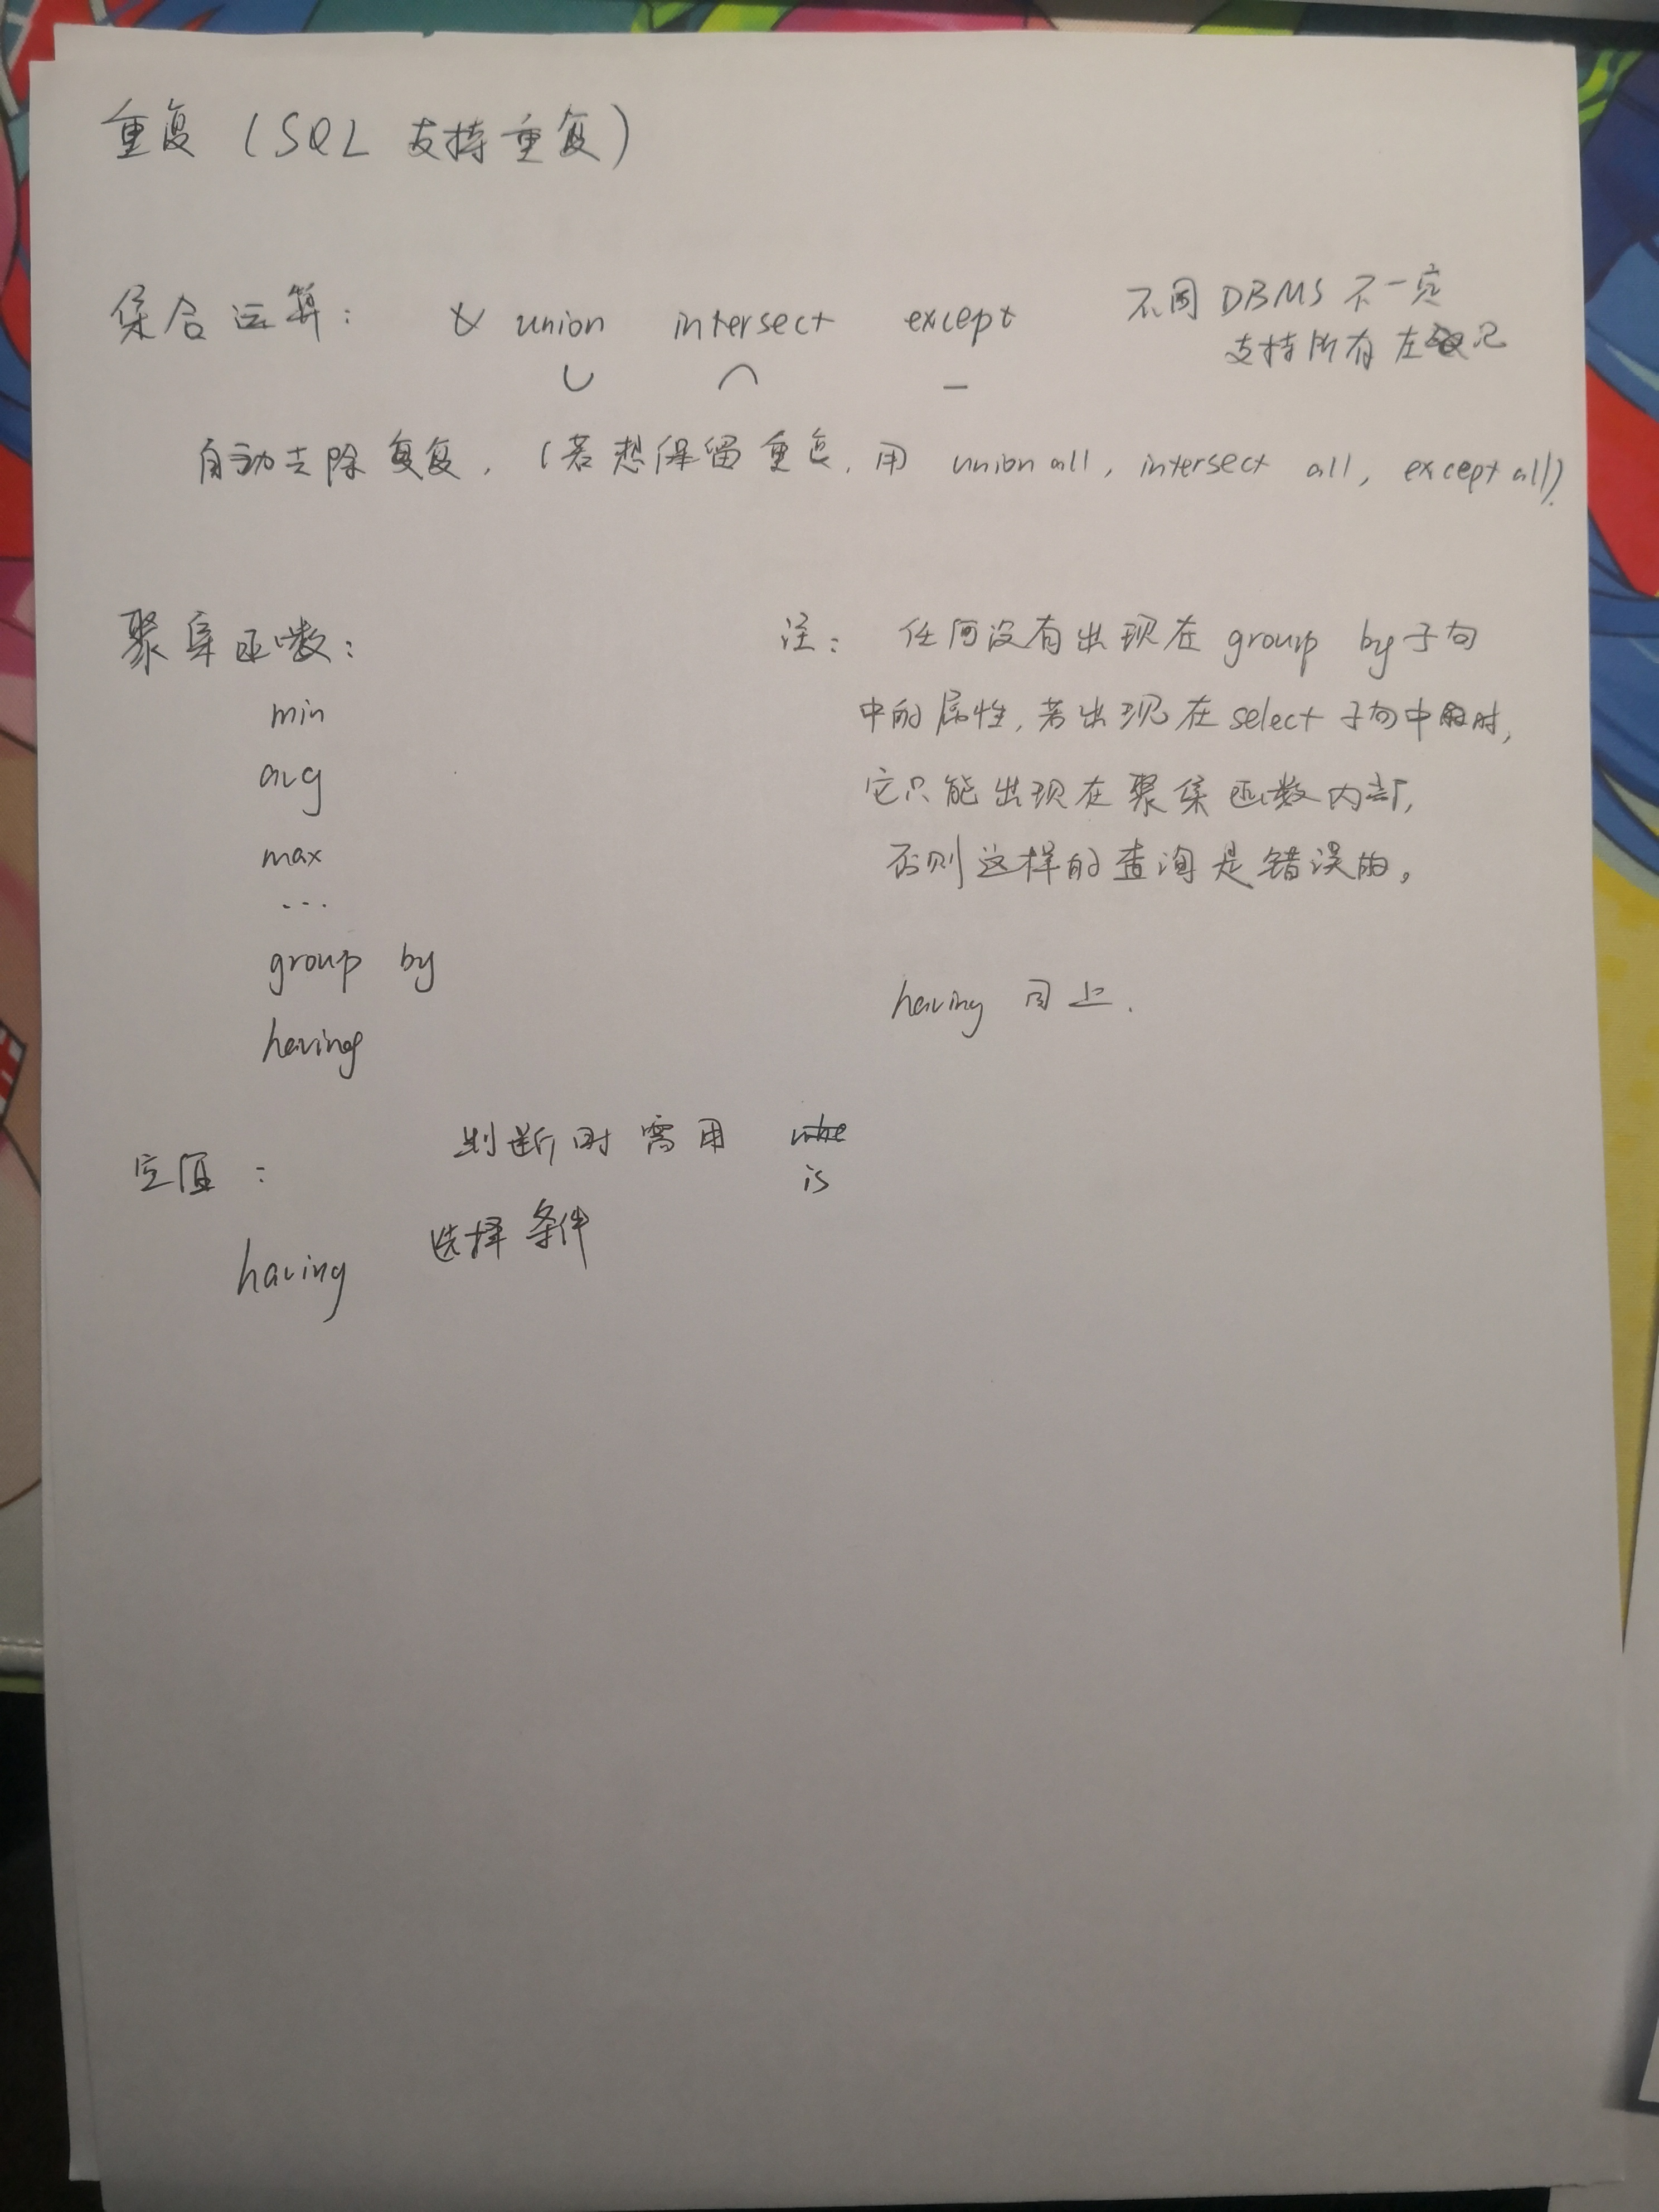 重复（SQL 支持重复）
集合运算： union intersect except
∪ ∩ －
不同 DBMS 不一定
支持所有左记
自动去除重复，（若想保留重复，用 union all, intersect all, except all).
聚集函数：
min
avg
max
...
group by
having
注： 任何没有出现在 group by 子句
中的属性，若出现在 select 子句中时，
它只能出现在聚集函数内部，
否则这样的查询是错误的。
having 同上.
空值： 判断时需用
is
having 选择条件